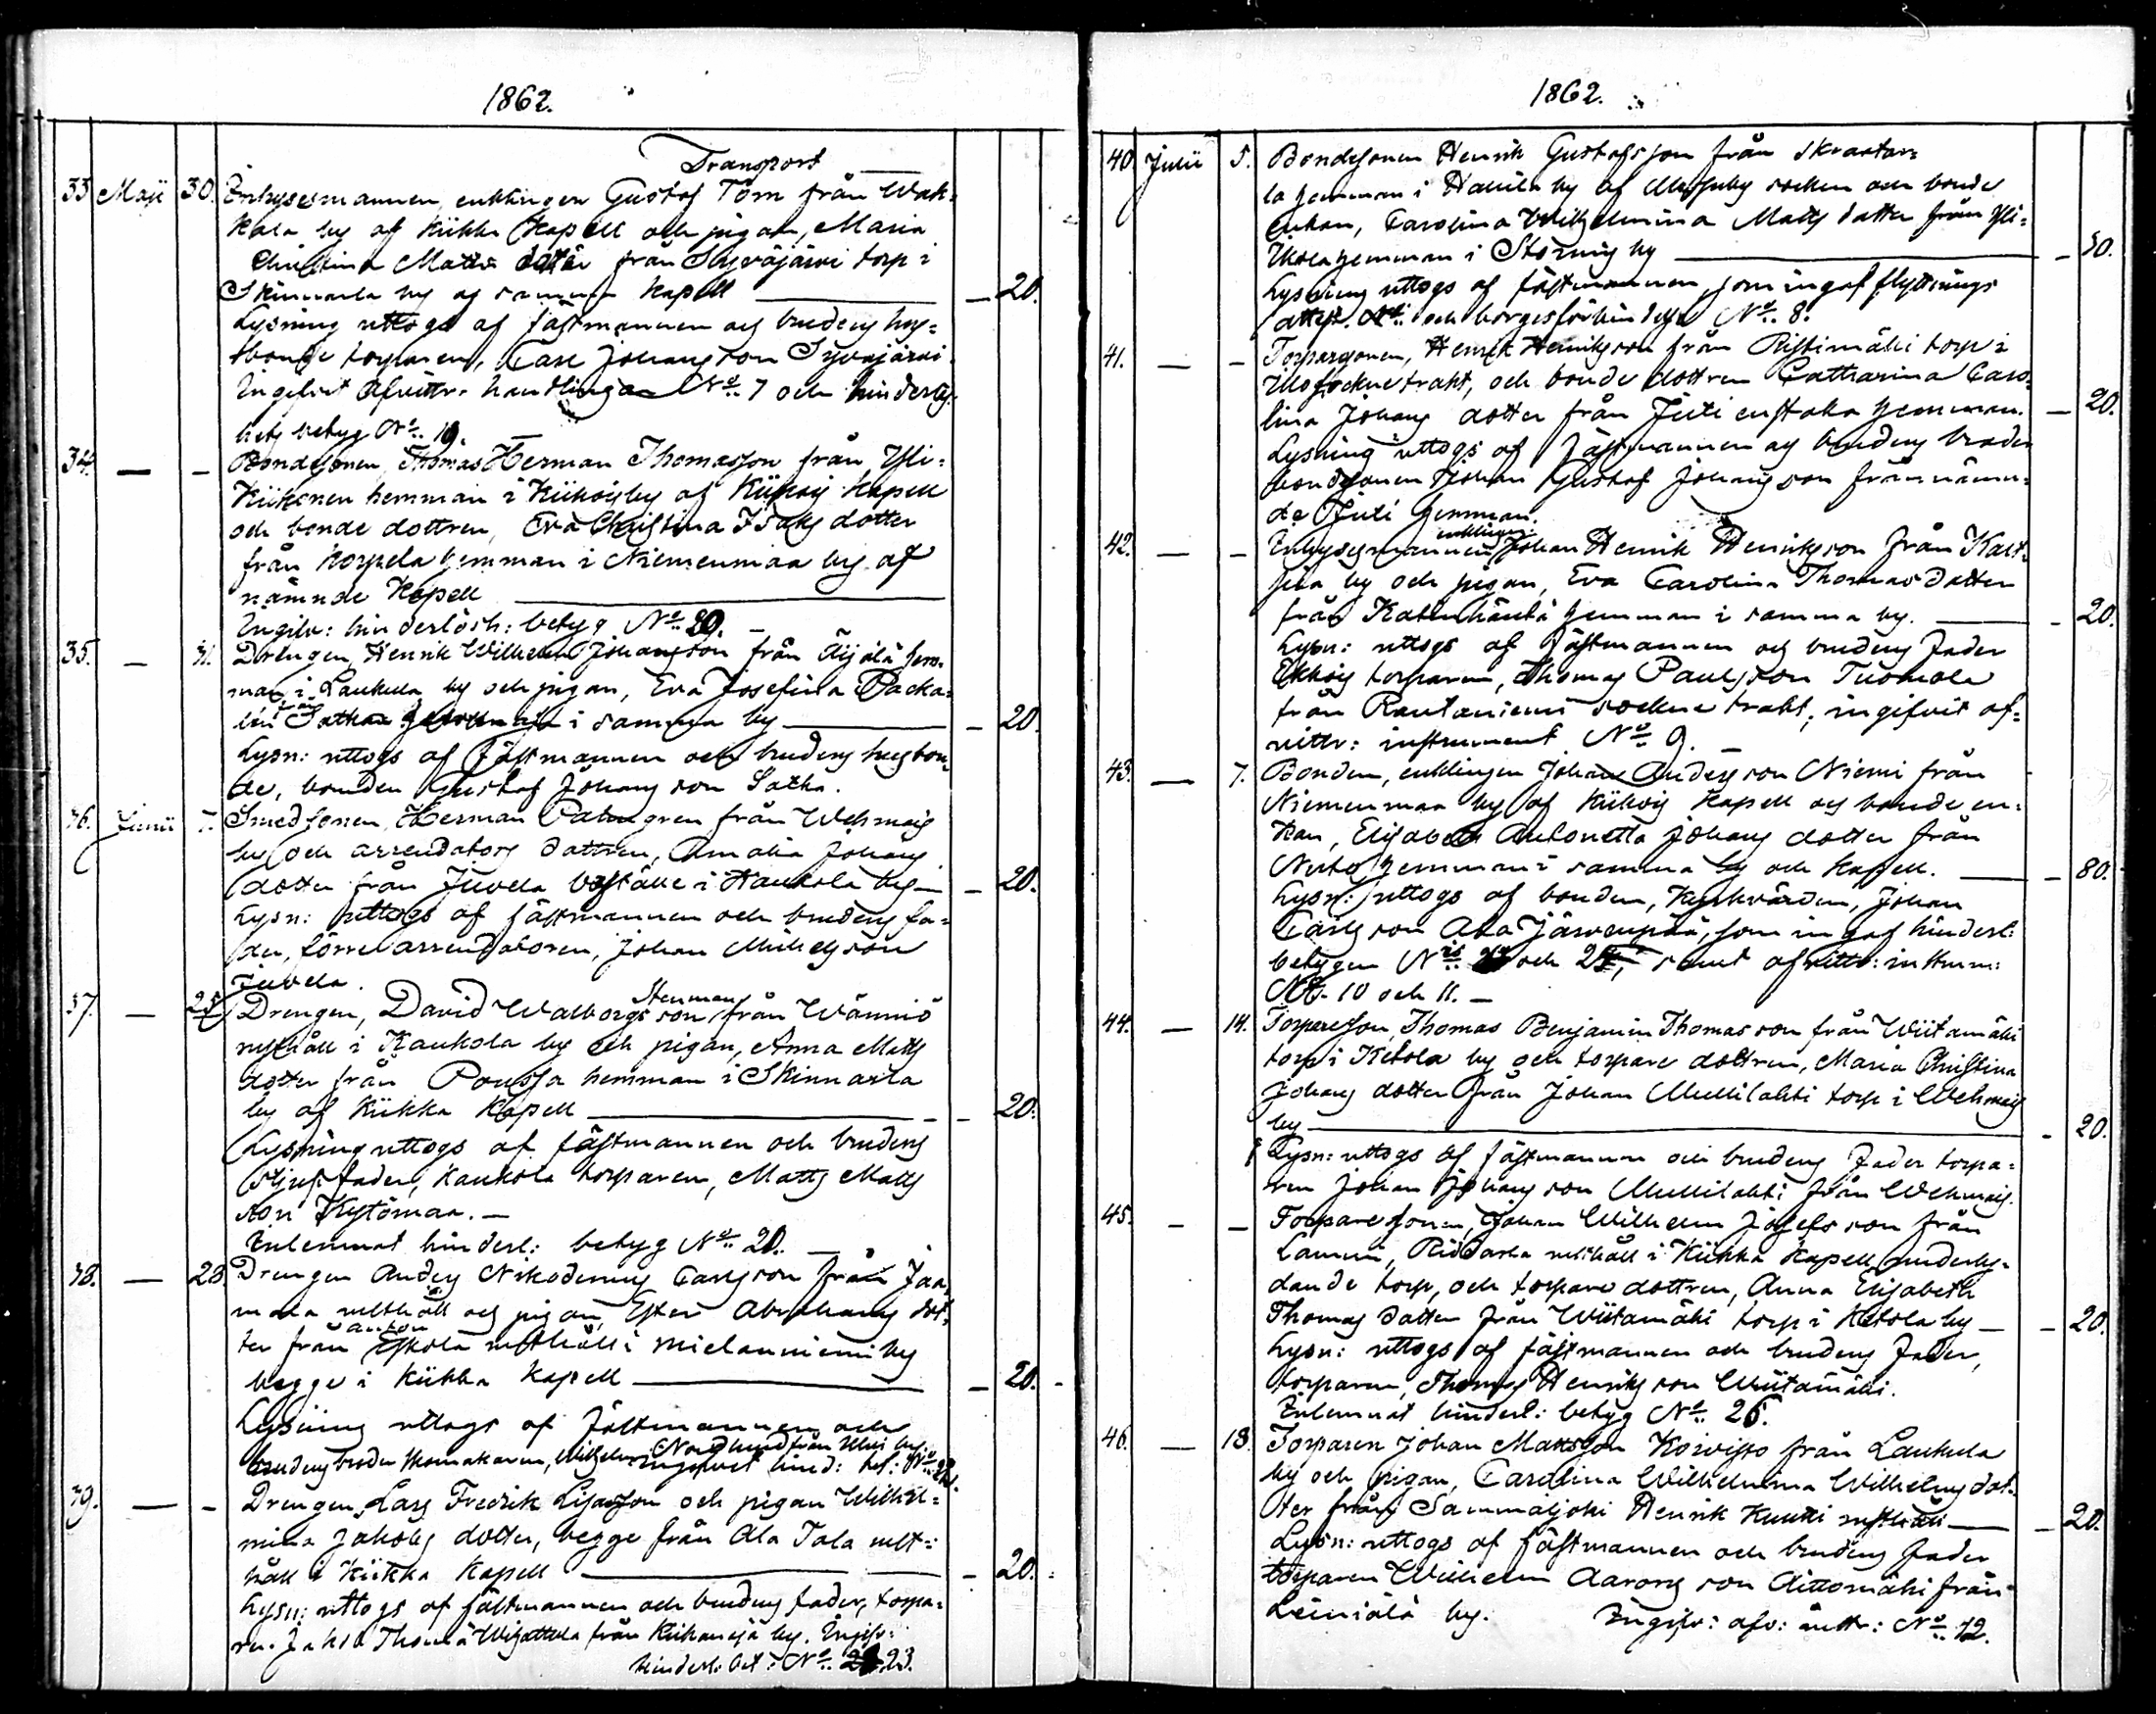 1862.
Transport
33 Maji 30. Inhysesmannen, enklingen Gustaf Törn från Wak=
kala by af Kiikka Kapell och pigan, Maria
Christina Matts dotter från Syväjärvi torp i
Skinnarla by af samma Kapell — 20.
Lysning uttogs af fästmannen och brudens hus=
bonde torparen, Carl Johansson Syväjärvi.
Ingifvit Afvittr. handlingar No. 7 och hinderlös.
hets betyg No. 19.
34. — — Bondesonen, Thomas Herman Thomasson från Yli=
Kiikonen hemman i Kiikois by af Kiikois Kapell
och bonde dottren, Eva Christina Isaks dotter
från Korpela hemman i Niemenmaa by af
nämnde Kapell
Ingifv: hinderlösh: betyg No. 20. —
35. — 31. Drengen, Henrik Wilhelm Johansson från Äijälä hem.
man i Laukula by och pigan, Eva Josefina Packa=
lin från Satka hemman i samma by — 20.
Lysn: uttogs af fästmannen och brudens husbon=
de, bonden Gustaf Johansson Satka.
36. Junii 7. Smedsonen, Herman Palmgren från Wehmais
by och arrendators dottren, Amalia Johans
dotter från Juvela boställe i Kaukola by — 20.
Lysn: uttogs af fästmannen och brudens fa=
der, förre arrendatoren, Johan Michelsson
Juvela.
37. — 25 Drengen, David Walborgsson Stenman från Wänniö
rusthåll i Kaukola by och pigan, Anna Matts
dotter från Poussa hemman i Skinnarla
by af Kiikka Kapell — 20.
Lysning uttogs af fästmannen och brudens
stjuffader, Kaukola torparen, Matts Matts
son Kytömaa. —
Inlemnat hinderl: betyg No. 21. —
38. — 28 Drengen Anders Nikodemus Carlsson från Jaa,
mala rusthåll och pigan, Ester Abrahams dot=
ter från Anton Eskola rusthåll i Mielanniemi by
begge i Kiikka Kapell — 20.
Lysning uttogs af fästmannen och
brudens broder skomakaren, Wilhelm Nordlund från Illois by.
ingifvit hind: bet: No. 22.
39. — — Drengen, Lars Fredrik Lisasson och pigan Wilhel=
mina Jakobs dotter, begge från Ala Tala rust=
håll i Kiikka Kapell — 20.
Lysn: uttogs af fästmannen och brudens fader, torpa=
ren. Jakob Thoma från Kiikanoja by. Ingifv:
hinderl. bet: No. 23.
1862.
40 Julii 5. Bondesonen Henrik Gustafsson från Skraatar=
la hemman i Haiula by af Messuby socken och bonde
enkan, Carolina Wilhelmina Matts dotter från Yli=
Ikola hemman i Stormis by — 50.
Lysning uttogs af fästmannen, som ingaf flyttnings
attest. och borgesförbindelse No. 8.
41. — — Torparsonen, Henrik Henriksson från Ristimäki torp i
Illo sockne trakt, och bonde dottren Catharina Caro=
lina Johans dotter från Juti enstaka hemman. — 20.
Lysning uttogs af fästmannen och brudens broder
bondesonen Johan Gustaf Johansson från nämn=
de Juti hemman.
42. — — Inhysesmannen, enklingen Johan Henrik Henriksson från Kalt=
sila by och pigan, Eva Carolina Thomas dotter
från Katinhäntä hemman i samma by. — 20.
Lysn: uttogs af fästmannen och brudens fader
Ekkois torparen, Thomas Paulsson Tuomola
från Rautaniemi sockne trakt, ingifvit af=
vittr: instrument No. 9. —
43. — 7. Bonden, enklingen Johan Andersson Niemi från
Niemenmaa by af Kiikois Kapell och bonde en=
kan, Elisabeth Antonetta Johans dotter från
Nuto hemman i samma by och Kapell. — 80.
Lysn: uttogs af bonden, Kyrkvärden, Johan
Carlsson Ala Järvenpää, som ingaf hinderl:
betygen No. och 25, samt afvittr: instrum:
No. 10 och 11. —
44. — 14. Torpareson, Thomas Benjamin Thomasson från Wiitamäki
torp i Ketola by och torpare dottren, Maria Christina
Johans dotter från Johan Mullilahti torp i Wehmais
by — 20.
Lysn: uttogs af fästmannen och brudens fader torpa=
ren Johan Johansson Mullilahti från Wehmais.
45. — — Torparesonen, Johan Wilhelm Josefsson från
Lammi, Riddarla rusthåll i Kiikka Kapell underly=
dande torp, och torpare dottren, Anna Elisabeth
Thomas dotter från Wiitamäki torp i Ketola by — 20.
Lysn: uttogs af fästmannen och brudens fader,
torparen, Thomas Henriksson Wiitamäki.
Inlemnat hinderl: betyg No. 26.
46. — 18. Torparen Johan Mattsson Koivisto från Laukula
by och pigan, Carolina Wilhelmina Wilhelms dot=
ter från Sammaljoki Henrik Kuuki rusthåll — 20.
Lysn: uttogs af fästmannen och brudens fader
torparen Wilhelm Aaronsson Aittomäki från
Leiniälä by. Ingifv: afv: instr: No. 12.